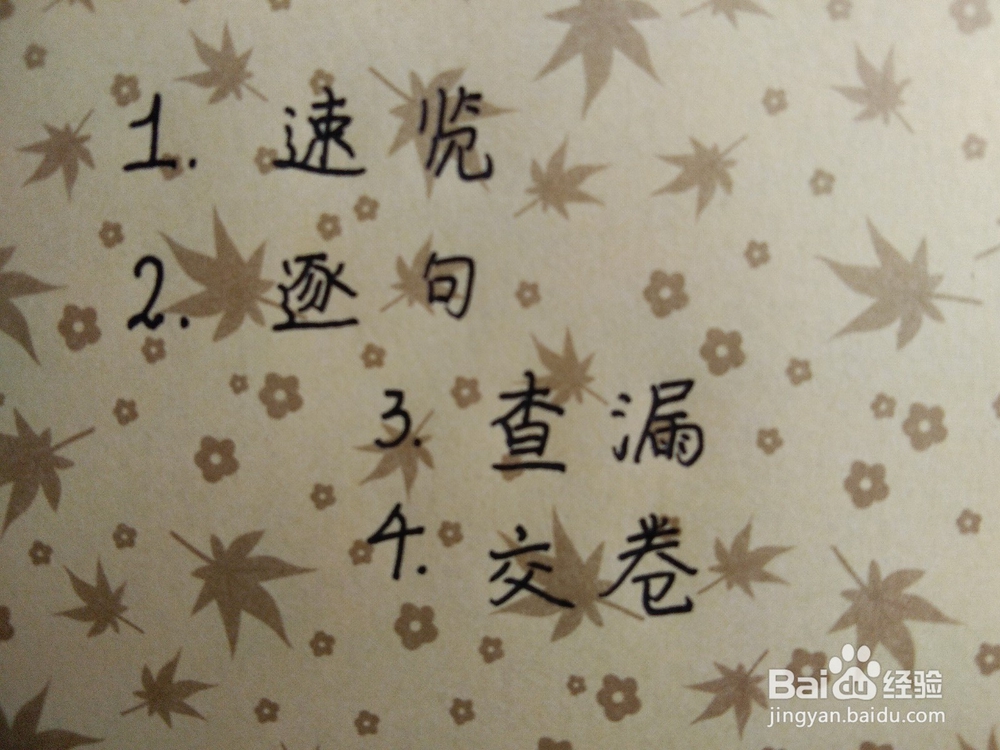 1. 速览
2. 逐句
3. 查漏
4. 交卷
Baidu 经验
jingyan.baidu.com